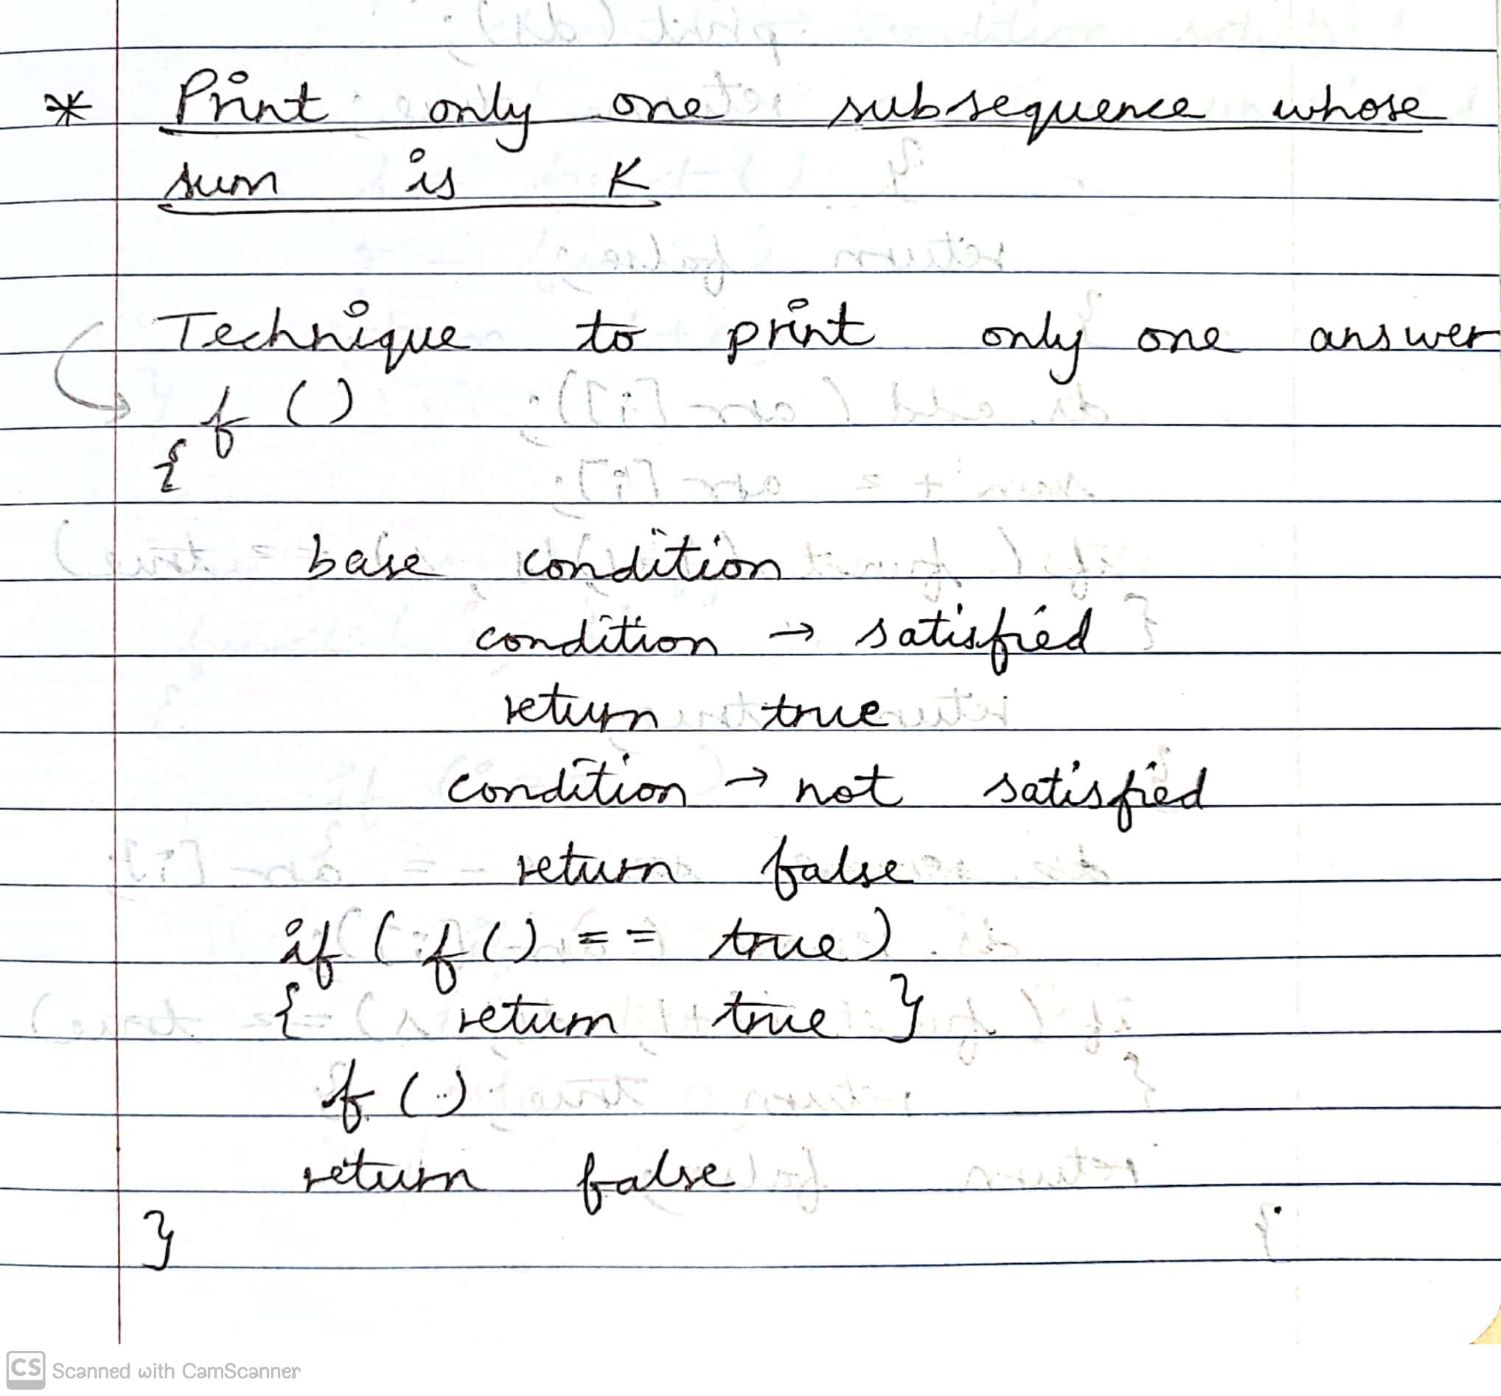 * Print only one subsequence whose
sum is K
Technique to print only one answer
f ()
{
base condition
condition → satisfied
return true
condition → not satisfied
return false
if (f() == true)
{ return true }
f ()
return false
}
CS Scanned with CamScanner